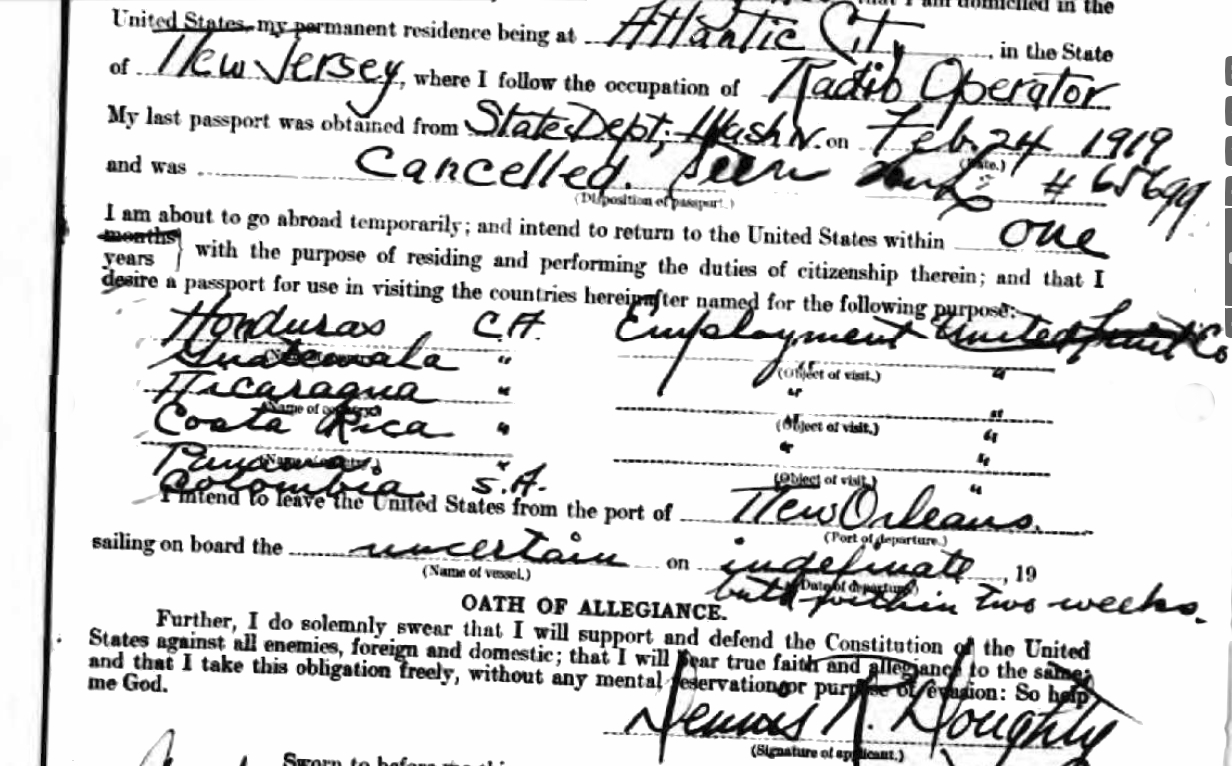 I am domiciled in the
United States, my permanent residence being at Atlantic City, in the State
of New Jersey, where I follow the occupation of Radio Operator
My last passport was obtained from State Dept, Wash'n. on Feb. 24 1919
(Date.)
and was Cancelled. Seen # 65699
(Disposition of passport.)
I am about to go abroad temporarily; and intend to return to the United States within one
months
years } with the purpose of residing and performing the duties of citizenship therein; and that I
desire a passport for use in visiting the countries hereinafter named for the following purpose:
Honduras C.A. Employment United Fruit Co
Guatemala " " "
(Object of visit.)
Nicaragua " " "
(Name of country.) (Object of visit.)
Costa Rica " " "
Panama. " "
(Object of visit.)
Colombia S.A. "
I intend to leave the United States from the port of New Orleans.
(Port of departure.)
sailing on board the uncertain on indefinate, 19
(Name of vessel.) (Date of departure.)
but within two weeks.
OATH OF ALLEGIANCE.
Further, I do solemnly swear that I will support and defend the Constitution of the United
States against all enemies, foreign and domestic; that I will bear true faith and allegiance to the same;
and that I take this obligation freely, without any mental reservation or purpose of evasion: So help
me God.
Dennis R. Doughty
(Signature of applicant.)
Sworn to before me this